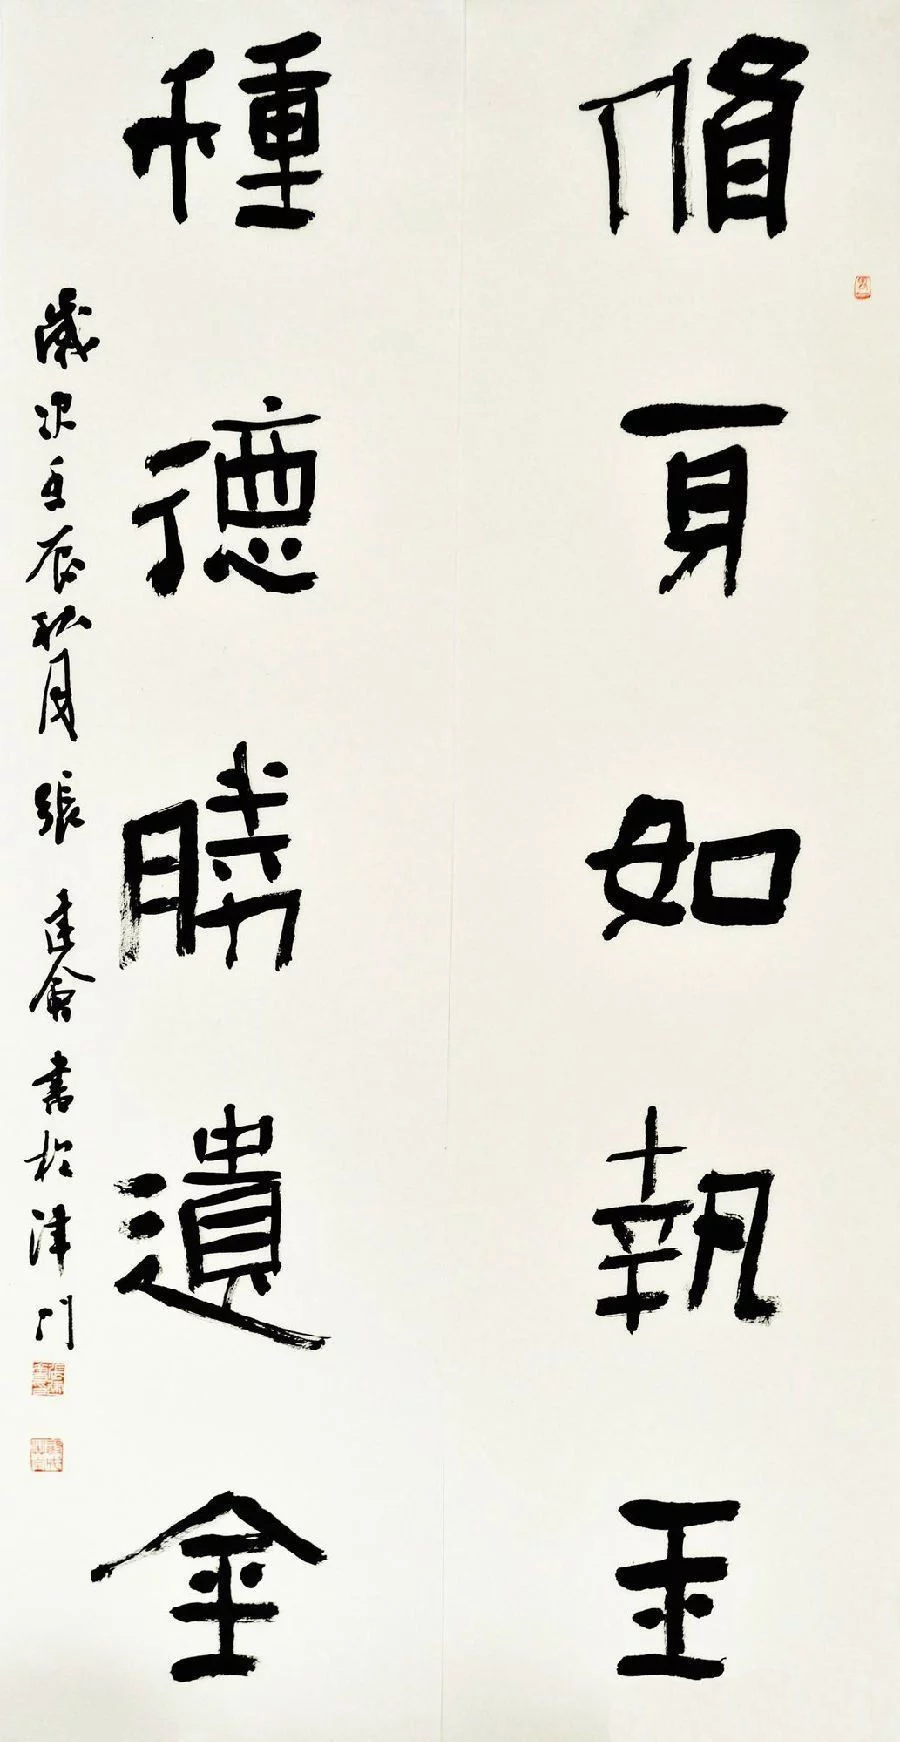 脩身如執玉
種德勝遺金
歲次壬辰秋月張建會書於津門